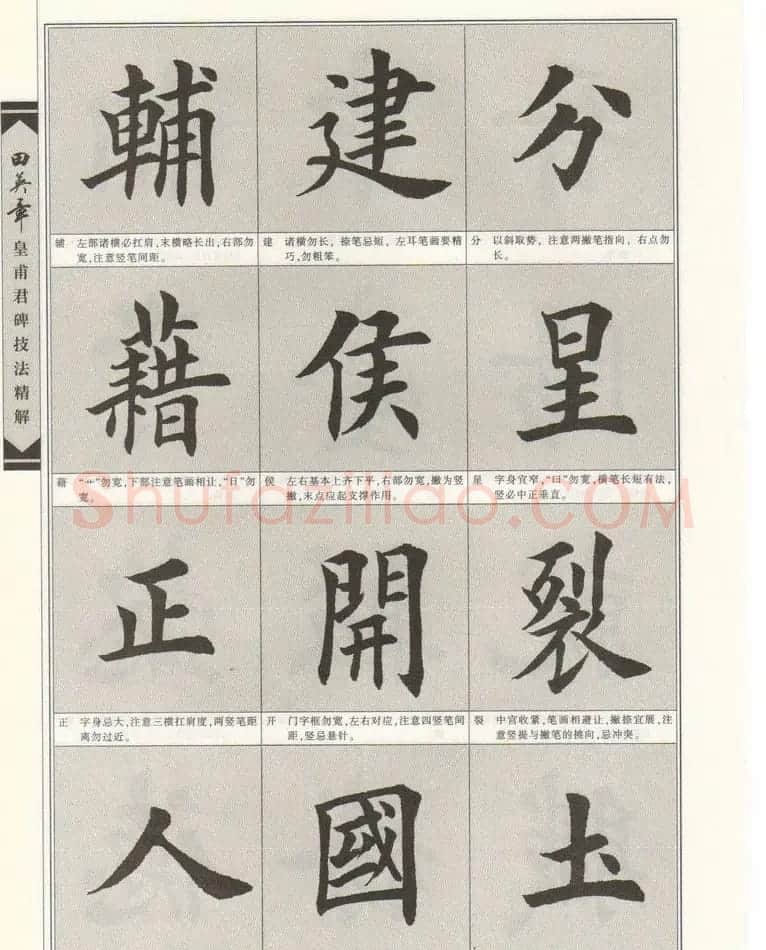 田英章 皇甫君碑技法精解
輔 建 分
辅 左部诸横必扛肩,末横略长出,右部勿
宽,注意竖笔间距。
建 诸横勿长,捺笔忌短,左耳笔画要精
巧,勿粗笨。
分 以斜取势,注意两撇笔指向,右点勿
长。
藉 侯 星
藉 “艹”勿宽,下部注意笔画相让,“日”勿
宽。
侯 左右基本上齐下平,右部勿宽,撇为竖
撇,末点应起支撑作用。
星 字身宜窄,“曰”勿宽,横笔长短有法,
竖必中正垂直。
Shufaziliao.COM
正 開 裂
正 字身忌大,注意三横扛肩度,两竖笔距
离勿过近。
开 门字框勿宽,左右对应,注意四竖笔间
距,竖忌悬针。
裂 中宫收紧,笔画相避让,撇捺宜展,注
意竖提与撇笔的挑向,忌冲突。
人 國 土